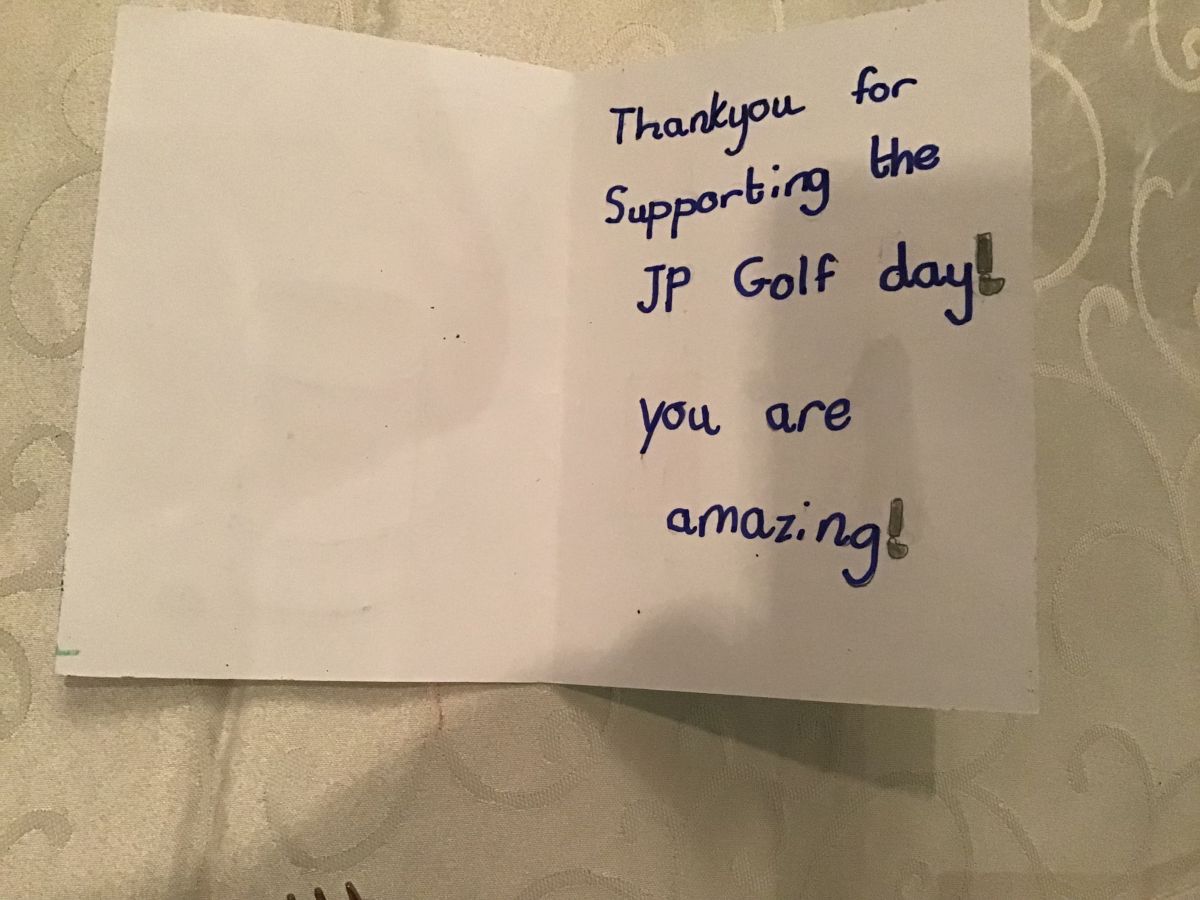 Thankyou for
Supporting the
JP Golf day!
you are
amazing!